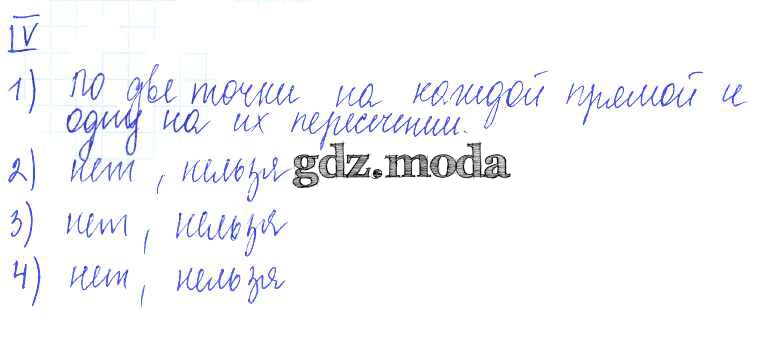 IV
1) По две точки на каждой прямой и
одну на их пересечении.
2) нет, нельзя
gdz.moda
3) нет, нельзя
4) нет, нельзя